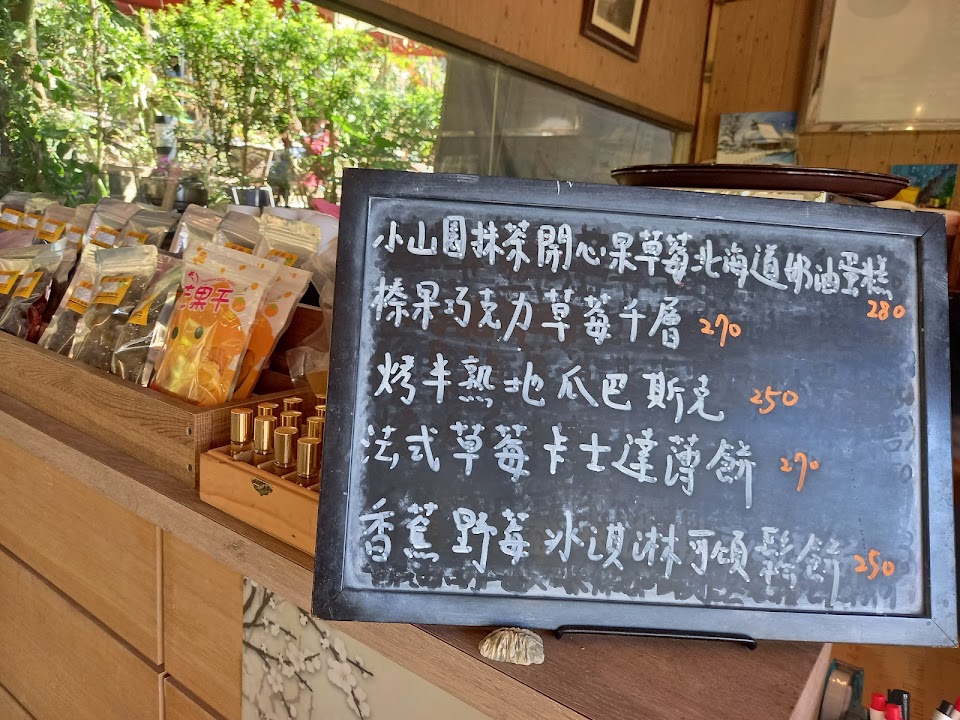 小山園抹茶開心果草莓北海道奶油蛋糕 280
榛果巧克力草莓千層 270
烤半熟地瓜巴斯克 250
法式草莓卡士達薄餅 270
香蕉野莓冰淇淋可頌鬆餅 250
果干